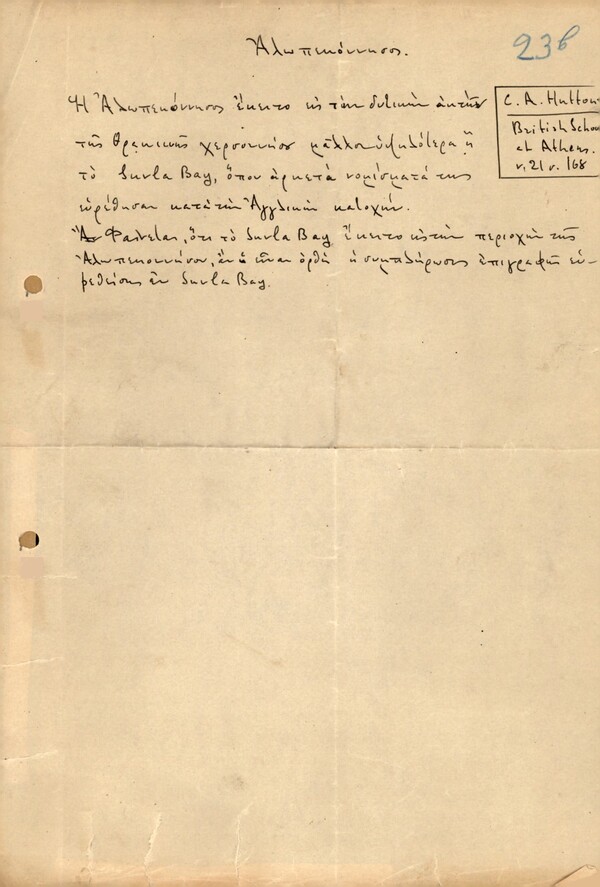 Ἀλωπεκόννησος.
23β
C. A. Hutton
British School
at Athens.
v. 21 σ. 168
Ἡ Ἀλωπεκόννησος ἔκειτο εἰς τὴν δυτικὴν ἀκτὴν
τῆς Θρακικῆς χερσοννήσου μᾶλλον ὑψηλότερα ἢ
τὸ Suvla Bay, ὅπου ἀρκετὰ νομίσματά της
εὑρέθησαν κατὰ τὴν Ἀγγλικὴν κατοχήν.
Φαίνεται, ὅτι τὸ Suvla Bay ἔκειτο εἰς τὴν περιοχὴν τῆς
Ἀλωπεκοννήσου, ἐὰν εἶναι ὀρθὴ ἡ συμπλήρωσις ἐπιγραφῆς εὑ-
ρεθείσης ἐν Suvla Bay.